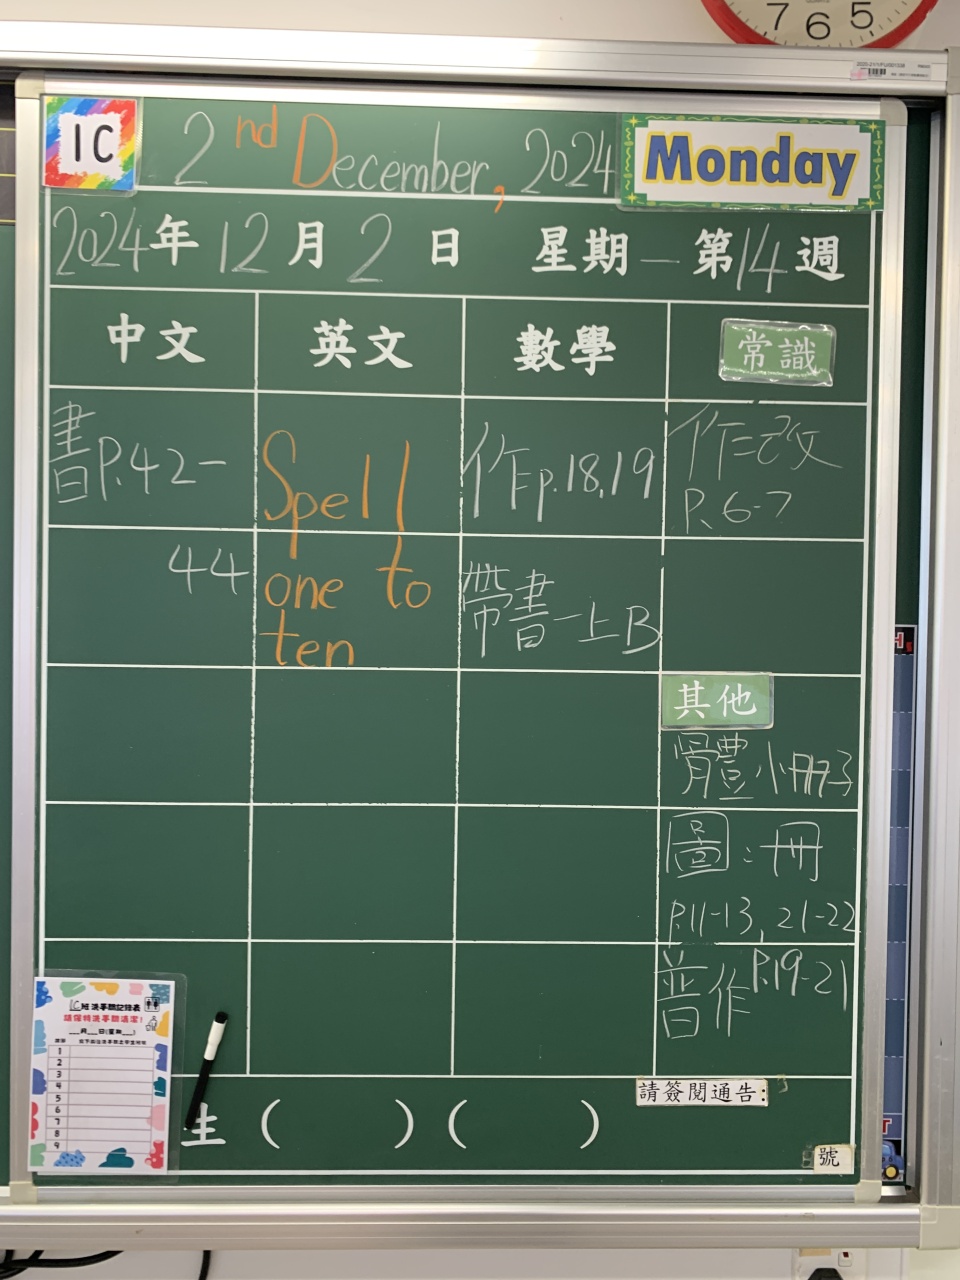 7 6 5
1C
2nd December, 2024
Monday
2024年12月2日 星期一 第14週
中文 英文 數學 常識
書P.42-
44
Spell
one to
ten
作p.18,19
帶書一上B
作=改
P.6-7
其他
體小冊子
圖:冊
P.11-13, 21-22
普作P.19-21
1C班洗手間記錄表
請保持洗手間清潔!
___月___日(星期___)
1
2
3
4
5
6
7
8
9
生 ( ) ( )
請簽閱通告:
號